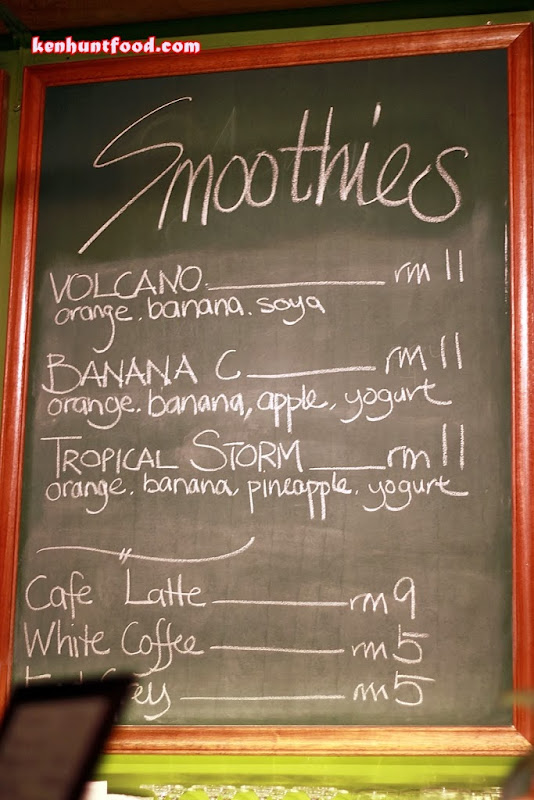 kenhuntfood.com
Smoothies
VOLCANO rm 11
orange. banana. soya
BANANA C rm 11
orange. banana, apple. yogurt
TROPICAL STORM rm 11
orange. banana, pineapple. yogurt
Cafe Latte rm 9
White Coffee rm 5
rm 5